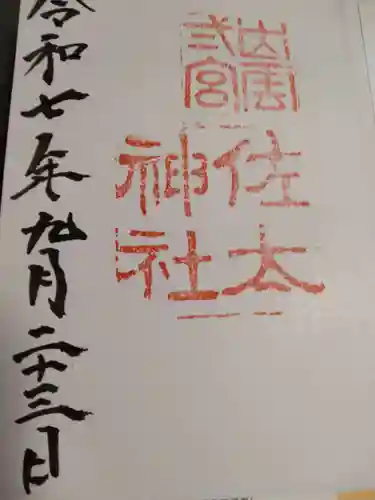 出雲
弐宮
佐太
神社
令和七年九月二十三日